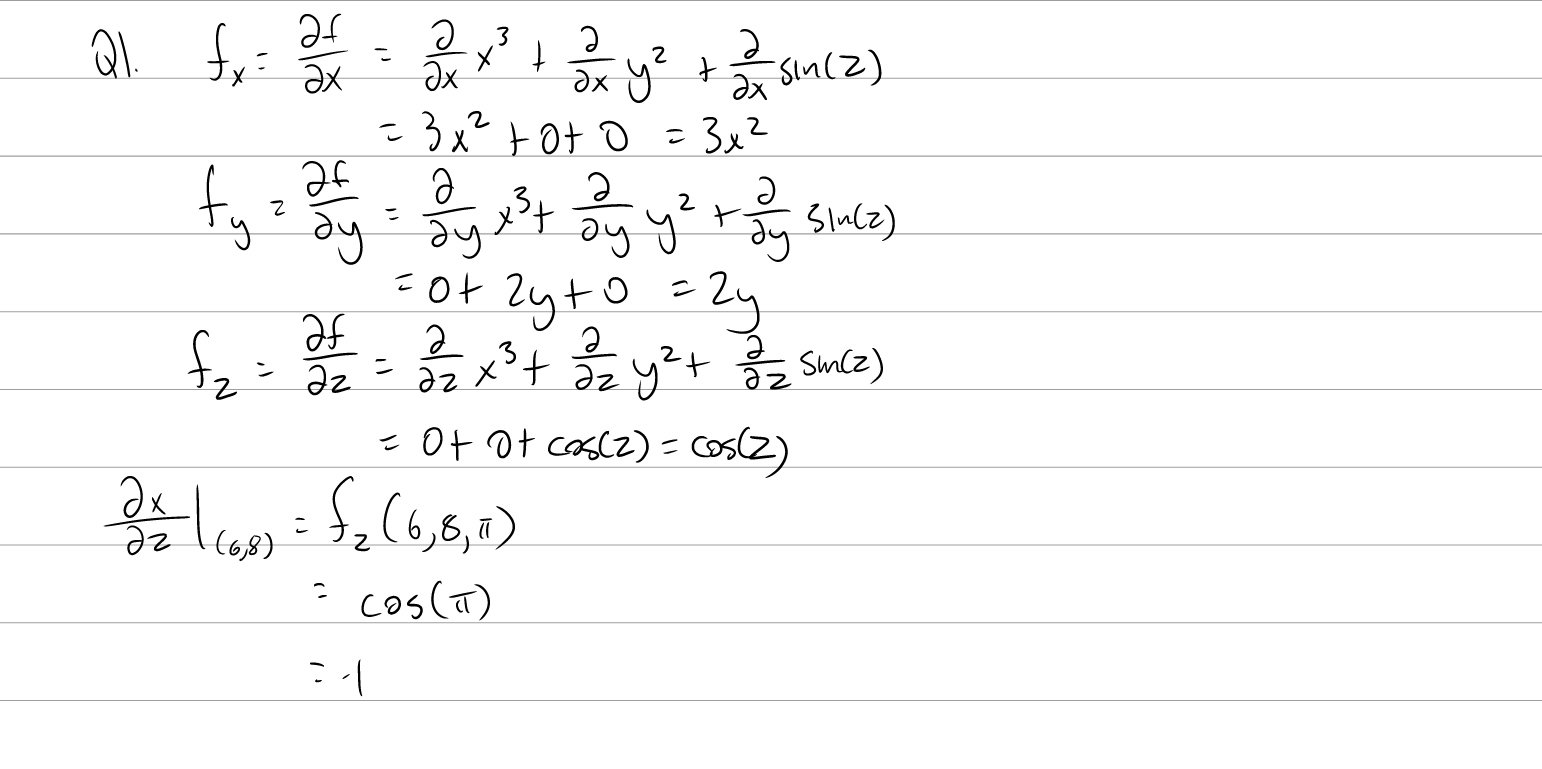 Q1. fₓ = ∂f/∂x = ∂/∂x x³ + ∂/∂x y² + ∂/∂x sin(z)
= 3x² + 0 + 0 = 3x²
f_y = ∂f/∂y = ∂/∂y x³ + ∂/∂y y² + ∂/∂y sin(z)
= 0 + 2y + 0 = 2y
f_z = ∂f/∂z = ∂/∂z x³ + ∂/∂z y² + ∂/∂z sin(z)
= 0 + 0 + cos(z) = cos(z)
∂x/∂z |_(6,8) = f_z(6,8,π)
= cos(π)
= -1